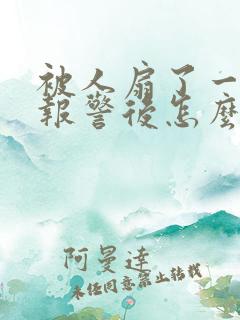 被人扇了一
報警後怎麼
阿曼達
未經同意禁止轉載